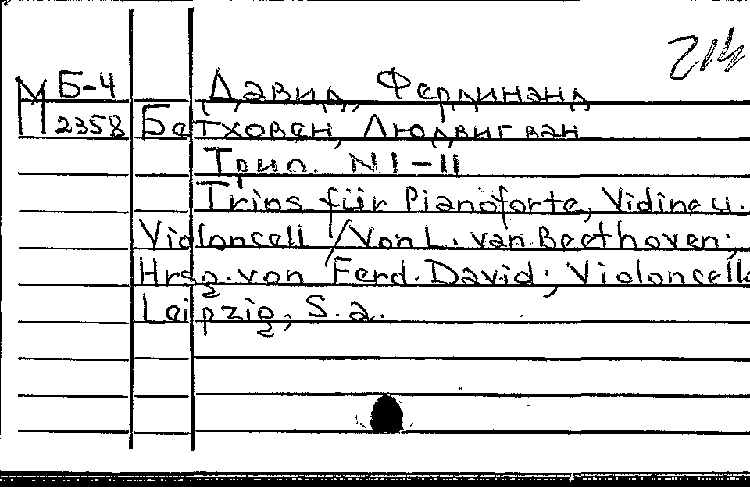 214
Б-4 Давид, Фердинанд
М 2358 Бетховен, Людвиг ван
Трио. N I-II
Trios für Pianoforte, Violine u.
Violoncell / Von L. van Beethoven;
Hrsg. von Ferd. David; Violoncell
Leipzig, S. a.